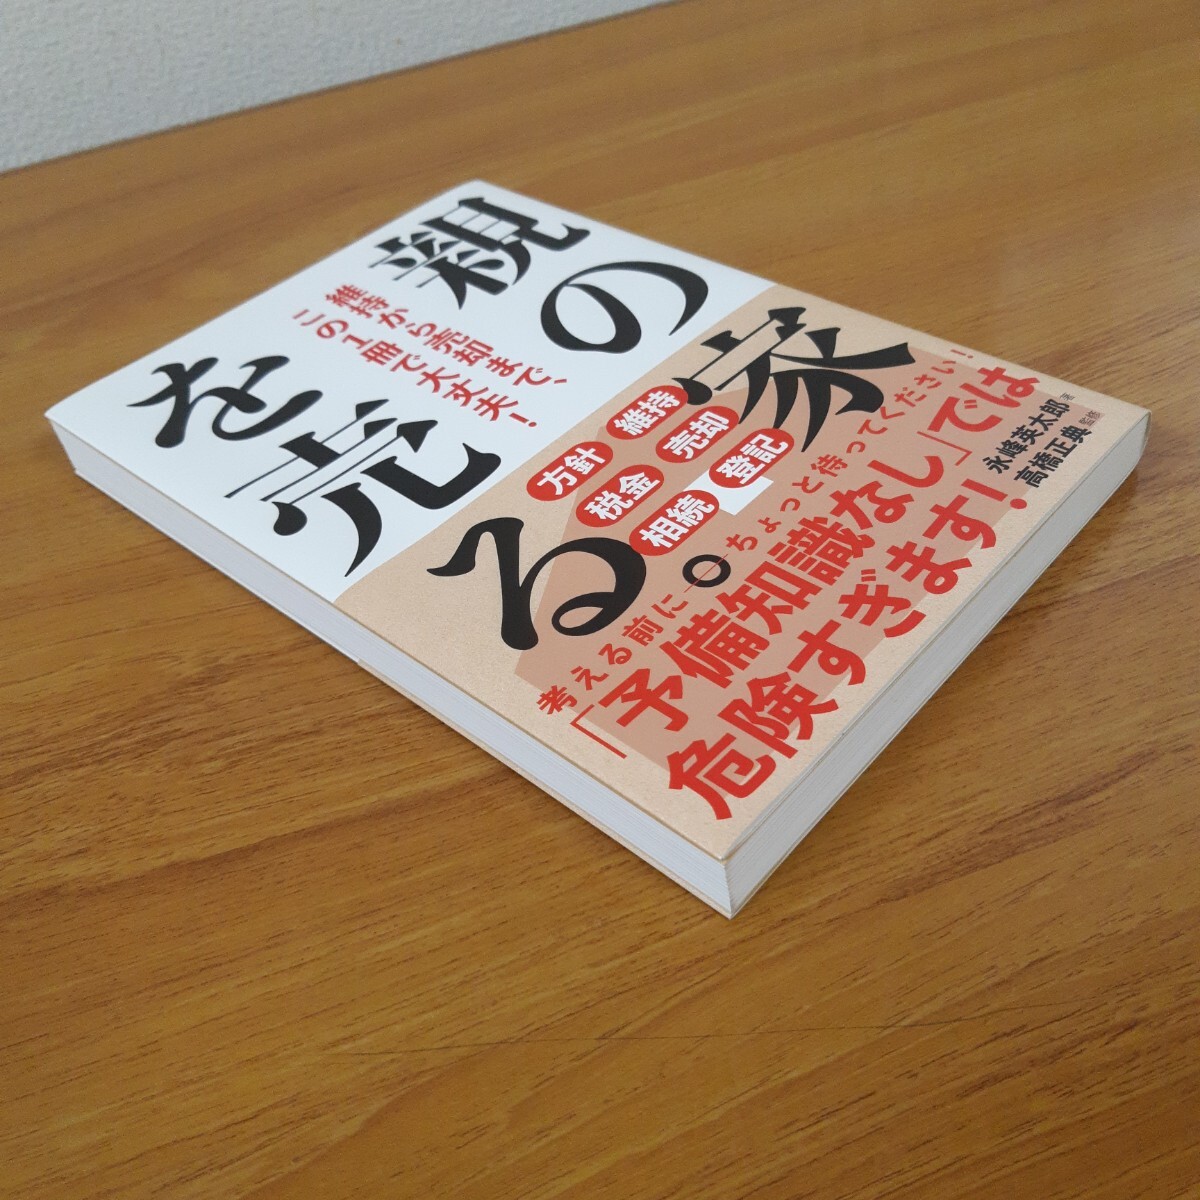 親の家
を売る。
維持から売却まで、
この1冊で大丈夫!
維持
売却
登記
方針
税金
相続
永峰英太郎 著
高橋正典 監修
考える前に――ちょっと待ってください!
「予備知識なし」では
危険すぎます!